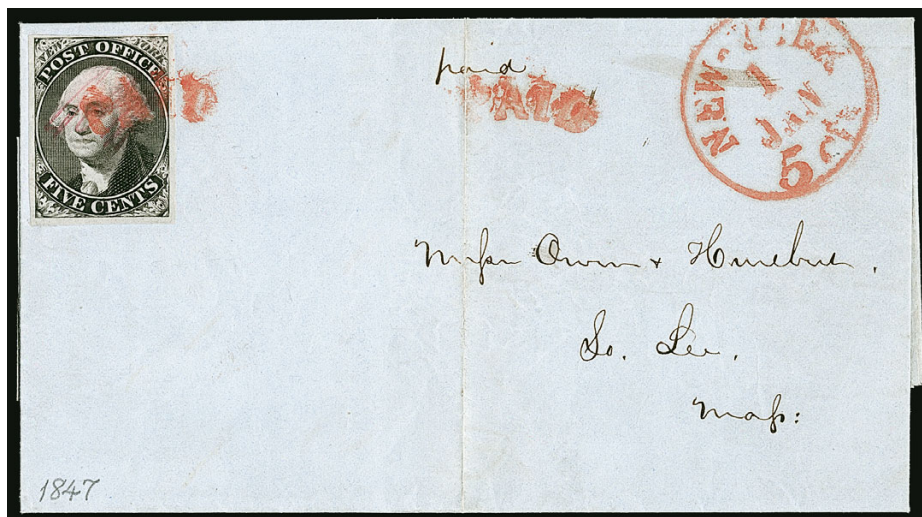 NEW YORK
POST OFFICE
FIVE CENTS
PAID
paid
PAID
NEW-YORK
1
JAN
5 cts
Messrs Owen & Hurlbut.
So. Lee,
Mass:
1847